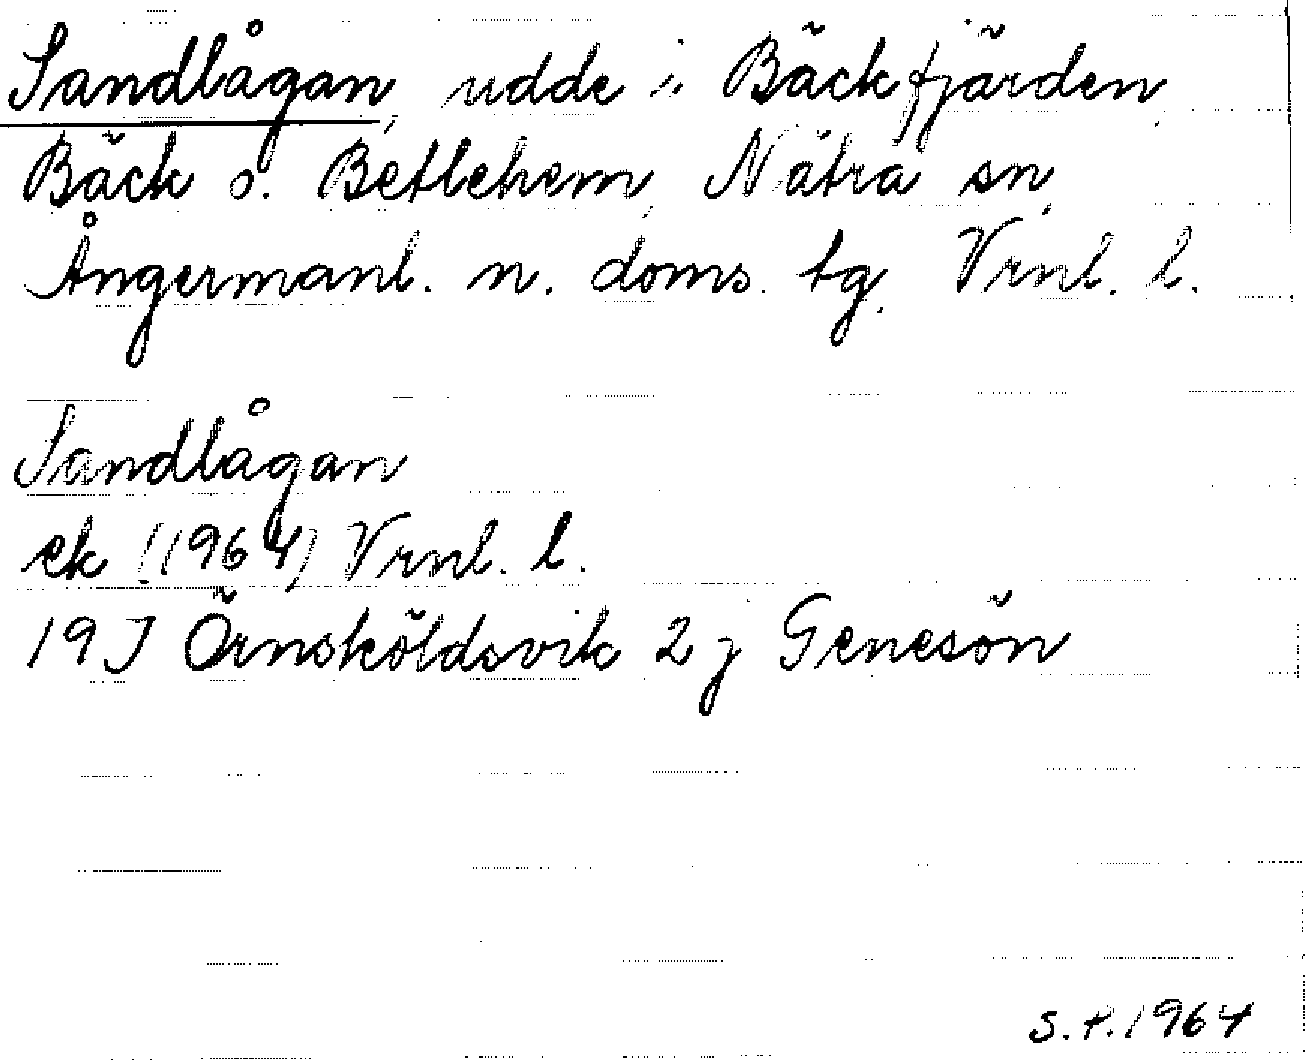 Sandlågan, udde i Bäckfjärden,
Bäck o. Betlehem, Nätra sn,
Ångermanl. n. doms. tg. Vrnl. l.
Sandlågan
ek (1964) Vrnl. l.
19J Örnsköldsvik 2 j Genesön
S.P. 1964